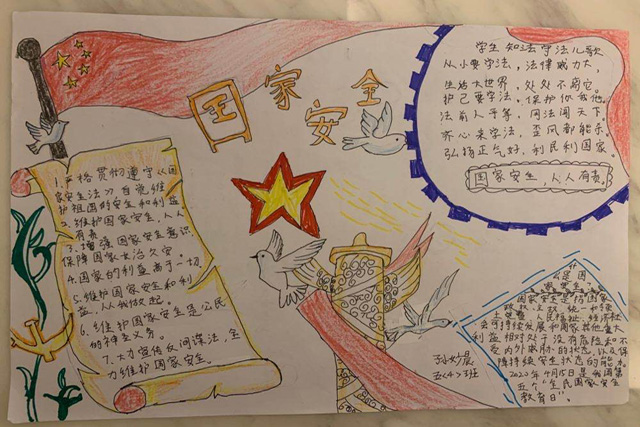 国家安全
学生知法守法儿歌
从小要学法，法律威力大，
生活大世界，处处不离它。
护己要学法，保护你我他。
法前人平等，用法闯天下。
齐心来学法，歪风都能杀。
弘扬正气好，利民利国家。
国家安全，人人有责。
1.严格贯彻遵守《国
家安全法》自觉维
护祖国的安全和利益
2.维护国家安全，人人
有责
3.增强国家安全意识
保障国家长治久安
4.国家的利益高于一切
5.维护国家安全和利
益，从我做起。
6.维护国家安全是公民
的神圣义务。
7.大力宣传反间谍法，全
力维护国家安全。
什
么是国
家安全
国家安全是指国家
政权、主权、统一和领
土完整、人民福祉、经济社
会可持续发展和国家其他重大
利益相对处于没有危险和不
受内外威胁的状态，以及保
障持续安全状态的能力。
2020年4月15日是我国第
五个“全民国家安全
教育日”。
五<4>班